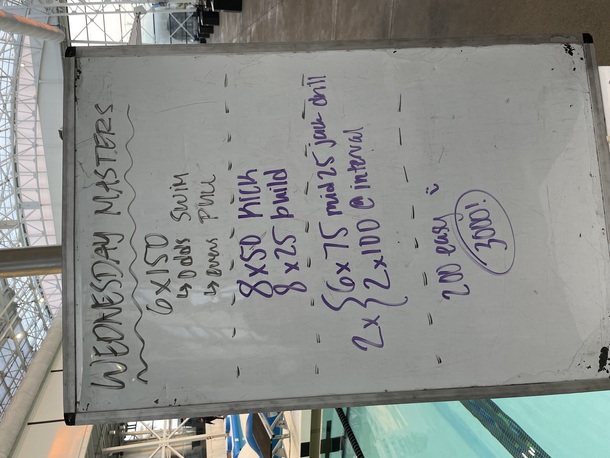 WEDNESDAY MASTERS
6x150
↳ Odds SWIM
↳ evens PULL
8x50 kick
8x25 build
2x { 6x75 mid 25 drill
{ 2x100 @ interval
200 easy :)
3000!